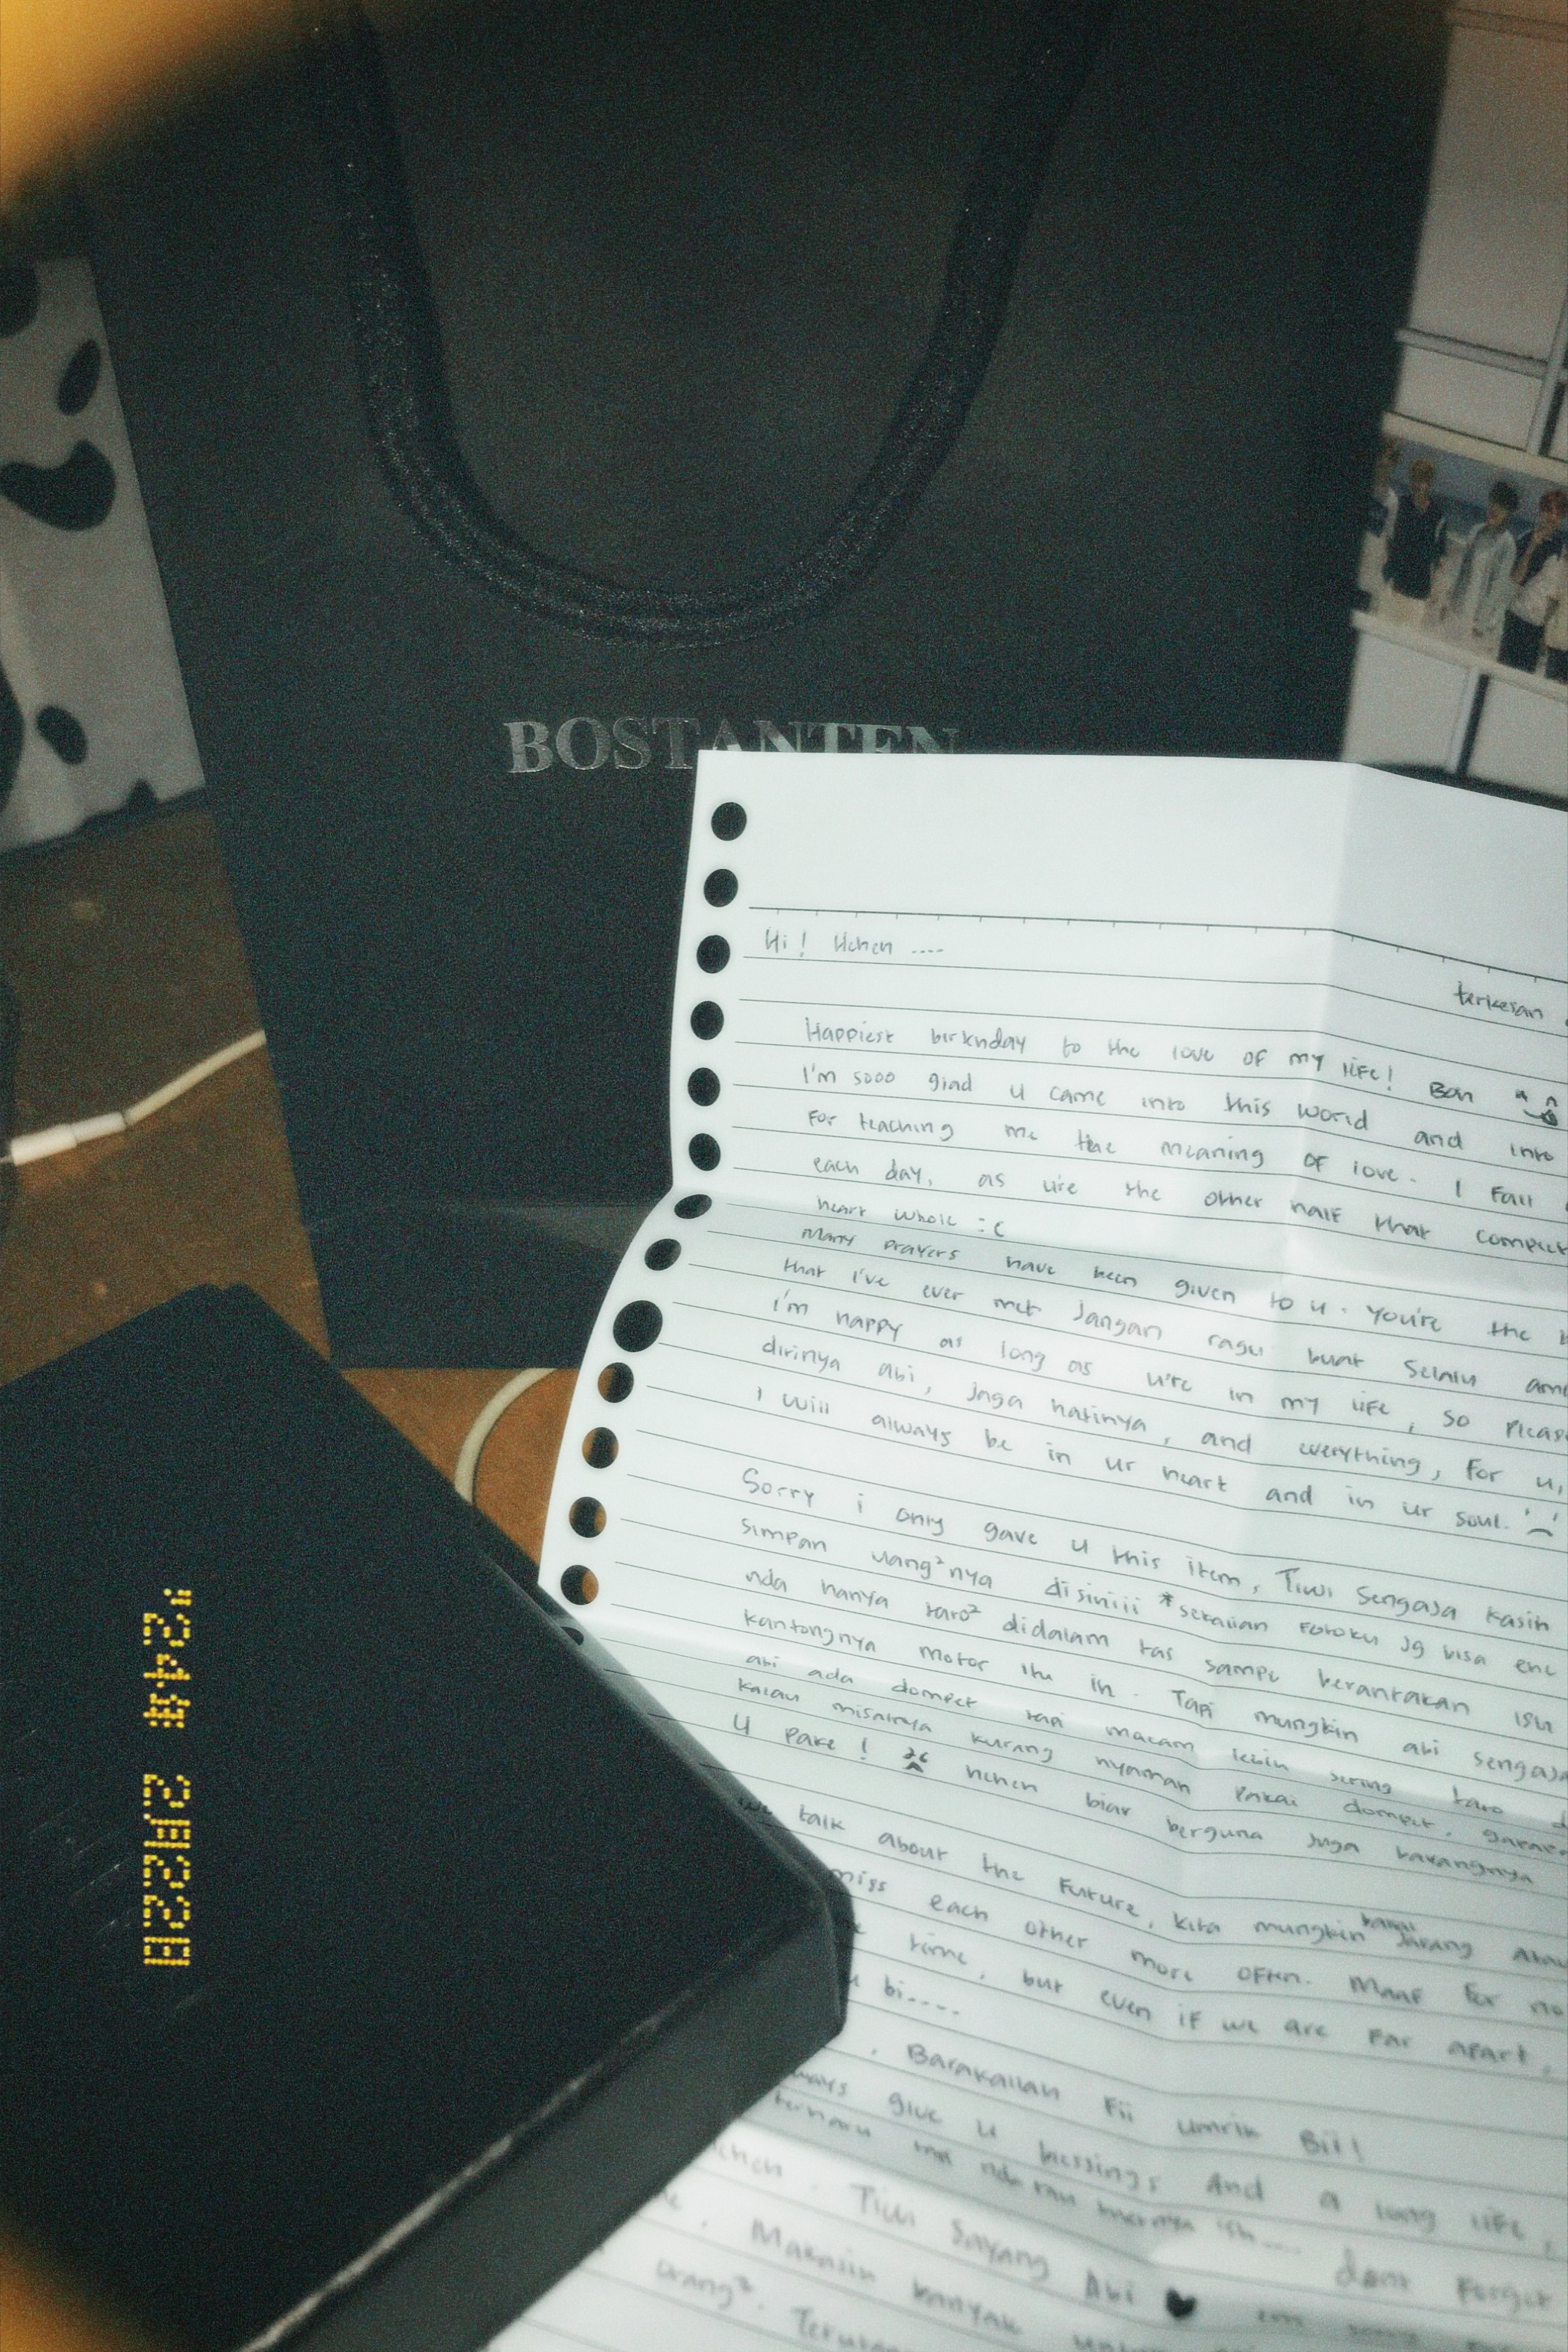 BOSTANTEN
Hi! Hehen ....
terkesan
Happiest birthday to the love of my life! Ban
I'm sooo glad u came into this world and into
For teaching me the meaning of love. I Fall
each day, as u're the other half that complet
heart whole :(
Many prayers have been given to u. You're the
that I've ever met Jangan ragu buat Selalu
i'm happy as long as u're in my life, so Pleas
dirinya abi, jaga hatinya, and everything, For u,
i will always be in ur heart and in ur soul.
Sorry i only gave u this item, Tiwi Sengaja kasih
simpan uang²nya disiniii *sekalian Fotoku jg bisa
nda hanya taro² didalam tas sampe berantakan ish
kantongnya motor itu ih. Tapi mungkin abi sengaja
abi ada dompet tapi macam lebih sering taro
kalau misalnya kurang nyaman Pakai dompet,
U Pake! hehen biar berguna juga barangnya
talk about the Future, kita mungkin bakal Jarang
miss each other more OFten. Maaf For
time, but even if we are Far apart,
bi----
, Barakallah Fii umrik Bii!
give u blessings And a long life,
nda
Tiwi Sayang Abi ♥
dont Forget
. Makasih banyak
orang².
"24# 2JM22:18